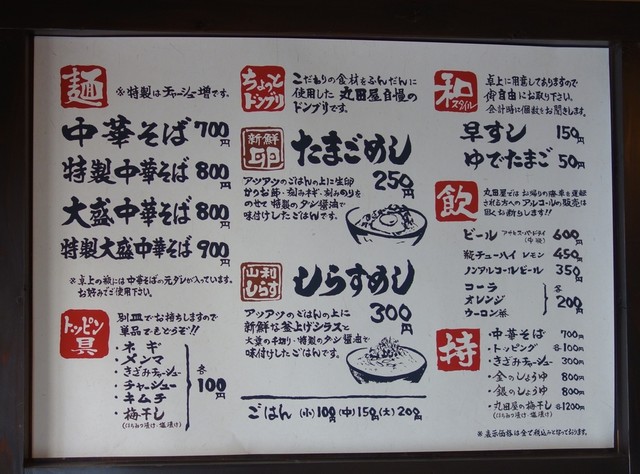 麺
※特製はチャーシュー増です。
中華そば 700円
特製中華そば 800円
大盛中華そば 800円
特製大盛中華そば 900円
※卓上の瓶には中華そばの元ダシが入っています。
お好みでご使用下さい。
トッピン具
別皿でお持ちしますので
単品でもどうぞ!!
・ネギ
・メンマ
・きざみチャーシュー
・チャーシュー
・キムチ
・梅干し
(はちみつ漬け・塩漬け)
各100円
ちょっとドンブリ
こだわりの食材をふんだんに
使用した丸田屋自慢の
ドンブリです。
新鮮卵
たまごめし
250円
アツアツのごはんの上に生卵
かつお節・刻みネギ・刻みのりを
のせて特製のダシ醤油で
味付けしたごはんです。
山利しらす
しらすめし
300円
アツアツのごはんの上に
新鮮な釜上げシラスと
大葉の千切り・特製のダシ醤油で
味付けしたごはんです。
ごはん (小)100円(中)150円(大)200円
和スタイル
卓上に用意してありますので
御自由にお取り下さい。
会計時に個数をお聞きします。
早すし 150円
ゆでたまご 50円
飲
丸田屋ではお帰りの際車を運転
される方へのアルコールの販売は
固くお断りします!!
ビール アサヒスーパードライ(中瓶) 600円
酎チューハイ レモン 450円
ノンアルコールビール 350円
コーラ
オレンジ
ウーロン茶
各200円
持
・中華そば 700円
・トッピング 各100円
・きざみチャーシュー 300円
・金のしょうゆ 800円
・銀のしょうゆ 800円
・丸田屋の梅干し 各1200円
(はちみつ漬け・塩漬け)
※表示価格は全て税込みとなっております。